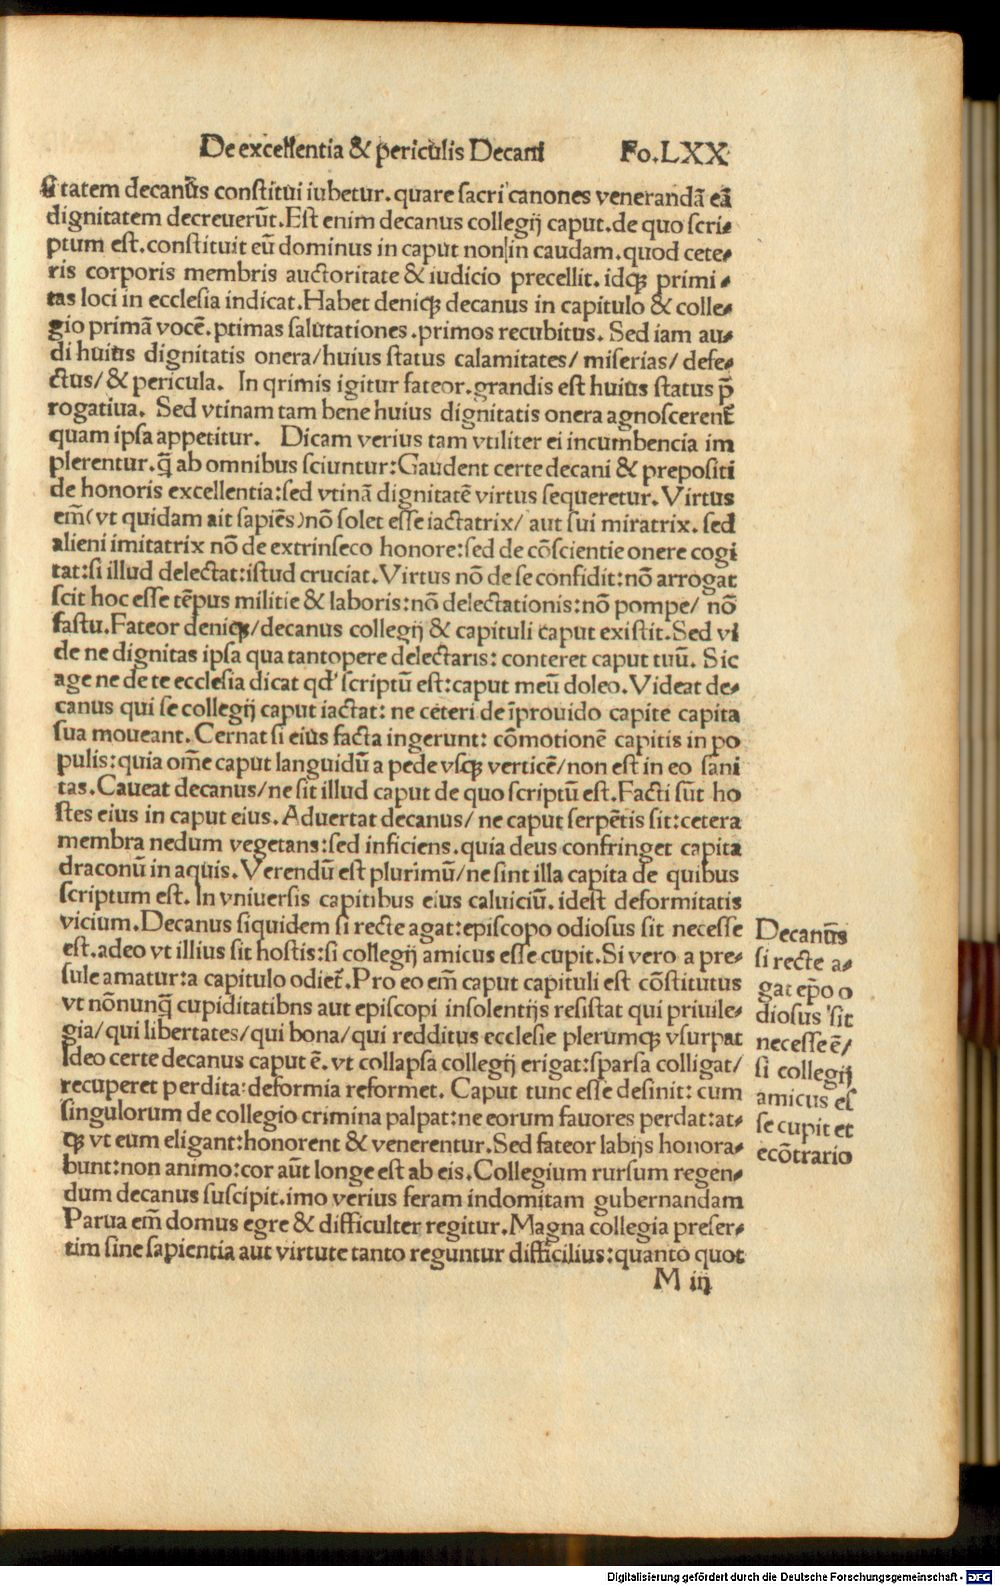 De excellentia & periculis Decani Fo.LXX
tatem decanus constitui iubetur. quare sacri canones venerandā eā
dignitatem decreuerūt. Est enim decanus collegij caput. de quo scri-
ptum est. constituit eū dominus in caput non in caudam. quod cete-
ris corporis membris auctoritate & iudicio precellit. idqꝫ primi-
tas loci in ecclesia indicat. Habet deniqꝫ decanus in capitulo & colle-
gio primā vocē. ptimas salutationes. primos recubitus. Sed iam au-
di huius dignitatis onera/huius status calamitates/ miserias/ defe-
ctus/ & pericula. In qrimis igitur fateor. grandis est huius status p̄
rogatiua. Sed vtinam tam bene huius dignitatis onera agnoscerent̄
quam ipsa appetitur. Dicam verius tam vtiliter ei incumbencia im
plerentur. q̄ ab omnibus sciuntur: Gaudent certe decani & prepositi
de honoris excellentia: sed vtinā dignitatē virtus sequeretur. Virtus
em̄(vt quidam ait sapiēs)nō solet esse iactatrix/ aut sui miratrix. sed
alieni imitatrix nō de extrinseco honore: sed de cōscientie onere cogi
tat: si illud delectat: istud cruciat. Virtus nō de se confidit: nō arrogat
scit hoc esse tēpus militie & laboris: nō delectationis: nō pompe/ nō
fastu. Fateor deniqꝫ/decanus collegij & capituli caput existit. Sed vi
de ne dignitas ipsa qua tantopere delectaris: conteret caput tuū. Sic
age ne de te ecclesia dicat qd' scriptū est: caput meū doleo. Videat de-
canus qui se collegij caput iactat: ne ceteri de īprouido capite capita
sua moueant. Cernat si eius facta ingerunt: cōmotionē capitis in po
pulis: quia om̄e caput languidū a pede vsqꝫ verticē/non est in eo sani
tas. Caueat decanus/ne sit illud caput de quo scriptū est. Facti sūt ho
stes eius in caput eius. Aduertat decanus/ ne caput serpētis sit: cetera
membra nedum vegetans: sed inficiens. quia deus confringet capita
draconū in aquis. Verendū est plurimū/ne sint illa capita de quibus
scriptum est. In vniuersis capitibus eius caluiciū. idest deformitatis
vicium. Decanus siquidem si recte agat: episcopo odiosus sit necesse
est. adeo vt illius sit hostis: si collegij amicus esse cupit. Si vero a pre-
sule amatur: a capitulo odiet̄. Pro eo em̄ caput capituli est cōstitutus
vt nōnunq̄ cupiditatibns aut episcopi insolentijs resistat qui priuile-
gia/qui libertates/qui bona/qui redditus ecclesie plerumqꝫ vsurpat
Ideo certe decanus caput ē. vt collapsa collegij erigat: sparsa colligat/
recuperet perdita: deformia reformet. Caput tunc esse desinit: cum
singulorum de collegio crimina palpat: ne eorum fauores perdat: at-
qꝫ vt eum eligant: honorent & venerentur. Sed fateor labijs honora-
bunt: non animo: cor aūt longe est ab eis. Collegium rursum regen-
dum decanus suscipit. imo verius feram indomitam gubernandam
Parua em̄ domus egre & difficulter regitur. Magna collegia preser-
tim sine sapientia aut virtute tanto reguntur difficilius: quanto quot
M iij
Decanus
si recte a-
gat ep̄o o
diosus sit
necesse ē/
si collegij
amicus es
se cupit et
ecōtrario
Digitalisierung gefördert durch die Deutsche Forschungsgemeinschaft - DFG